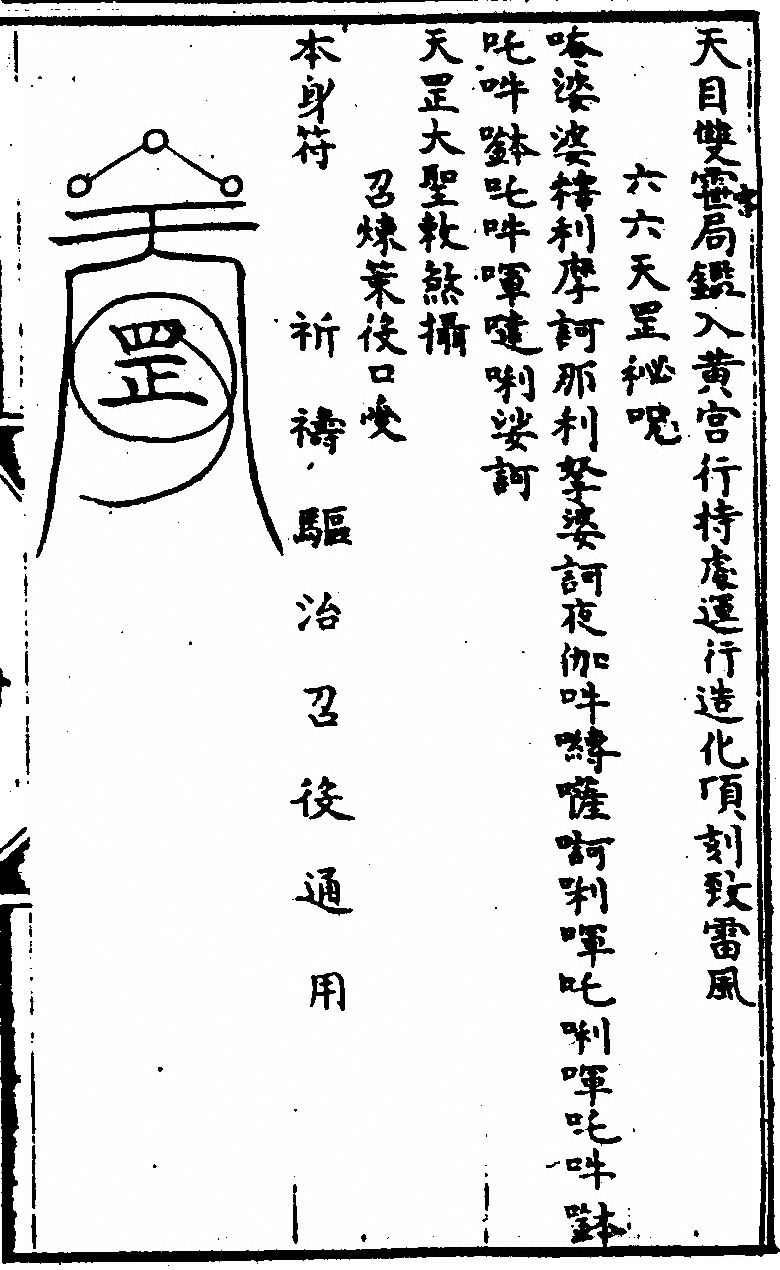 天目雙霊局鑑入黃宮行持處運行造化頃刻致雷風
六六天罡祕咒
唵婆婆𣗳利摩訶那利拏婆訶夜伽吽嚩囇訶唎㖶吒唎㖶吒吽㘄
吒吽㘄吒吽㖶㗶唎娑訶
天罡大聖軟煞攝
召煉葉後口噯
本身符
祈禱驅治召役通用
罡